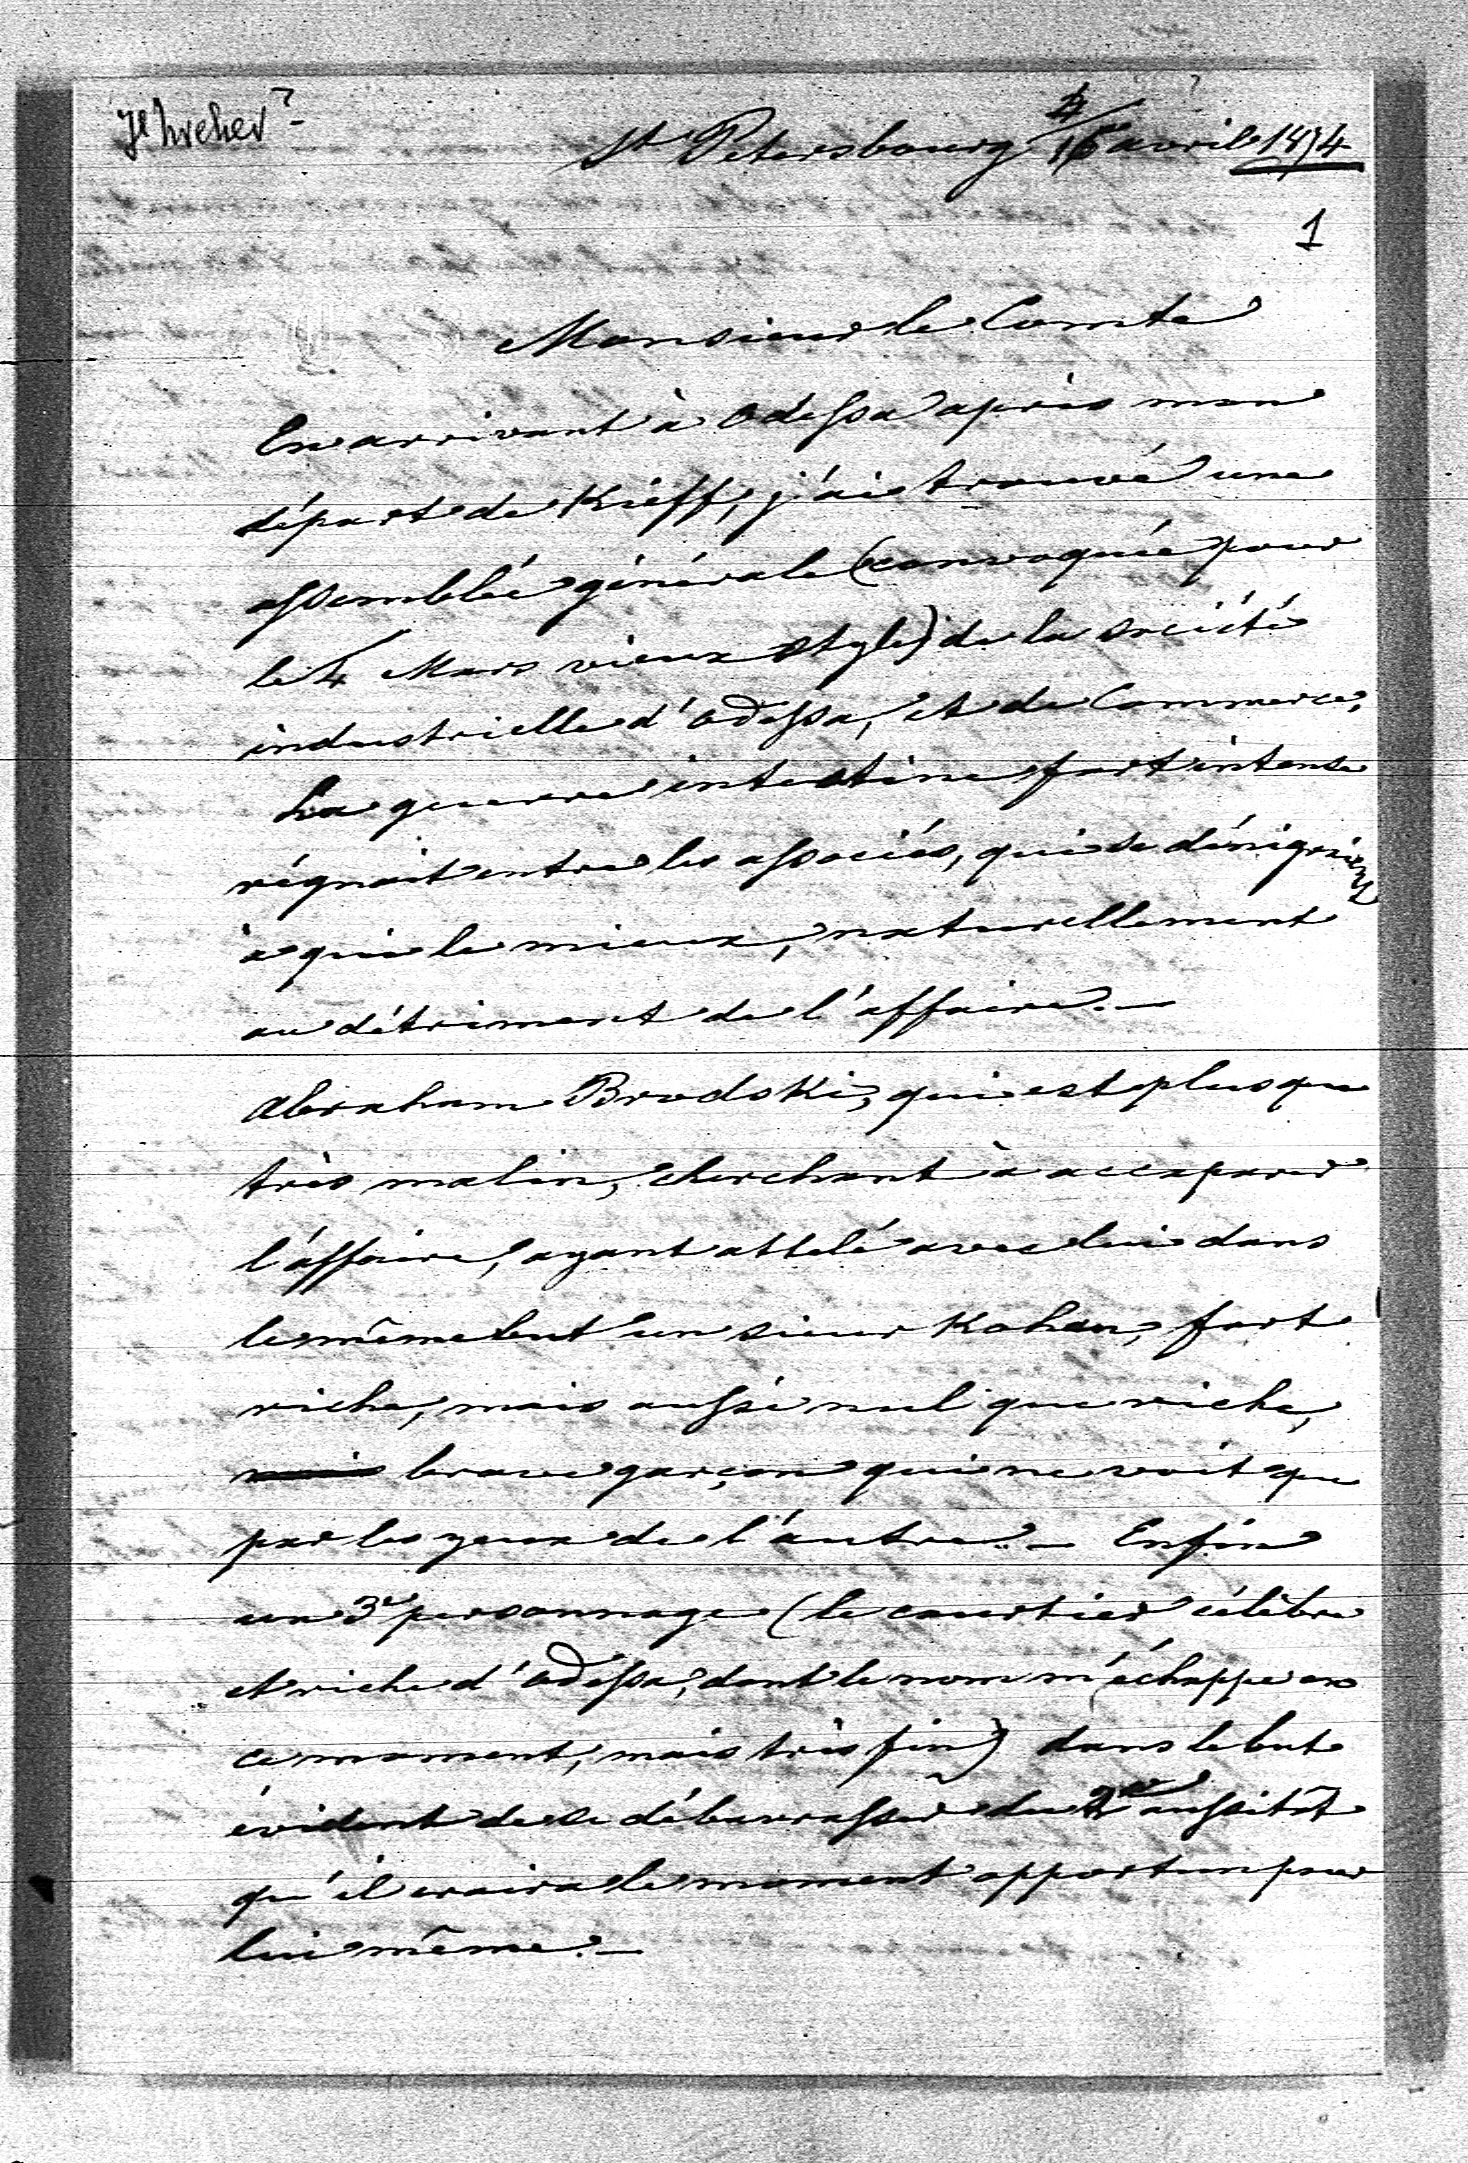 St Petersbourg 4/16 avril 1874
1
Monsieur le Comte
En arrivant à Odessa après mon
départ de Kieff, j'ai trouvé une
assemblée générale (convoquée pour
le 4 Mars vieux style) de la société
industrielle d'Odessa, et de Commerce,
La guerre intestine fort intense
régnait entre les associés, qui se dénigraient
à qui le mieux, naturellement
au détriment de l'affaire. —
Abraham Brodski, qui est plus que
très malin, cherchant à accaparer
l'affaire, ayant attelé avec lui dans
le même but un sieur Kohan, fort
riche, mais aussi nul que riche,
brave garçon qui ne voit que
par les yeux de l'autre. — Enfin
un 3e personnage (le courtier célèbre
et riche d'Odessa, dont le nom m'échappe en
ce moment, mais très fin) dans le but
évident de se débarrasser du 2e aussitôt
qu'il croira le moment opportun pour
lui même. —